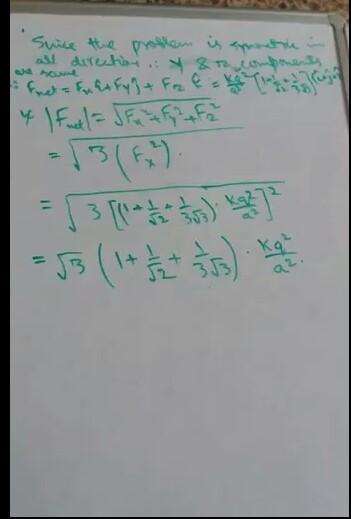 Since the problem is symmetric in
all direction ∴ Y & Z components
are same
∴ Fnet = Fx î + Fy ĵ + Fz k̂ = Kq²/a² [1+1/√2+1/3√3]
& |Fnet| = √(Fx² + Fy² + Fz²)
= √(3(Fx²)).
= √(3[(1+1/√2+1/3√3)·Kq²/a²]²)
= √3 (1+1/√2+1/3√3)·Kq²/a².